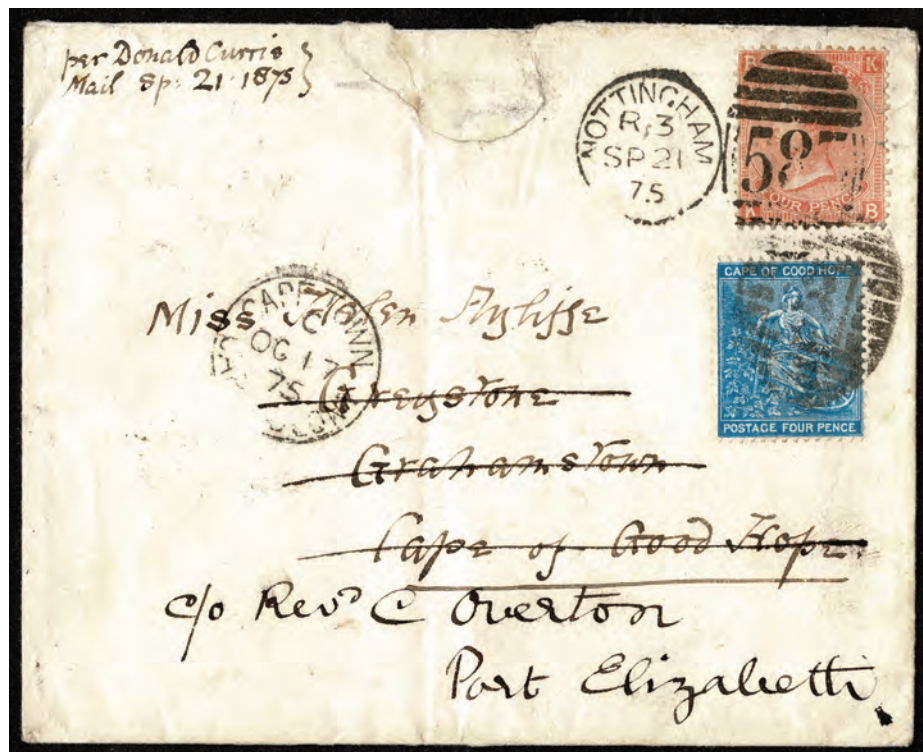 per Donald Currie
Mail Sp. 21. 1875
NOTTINGHAM
R.3
SP 21
75
B K
587
FOUR PENCE
K B
CAPE OF GOOD HOPE
POSTAGE FOUR PENCE
CAPE TOWN
OC 17
75
Miss Helen Ayliffe
Greystone
Grahamstown
Cape of Good Hope
c/o Revd C Overton
Port Elizabeth